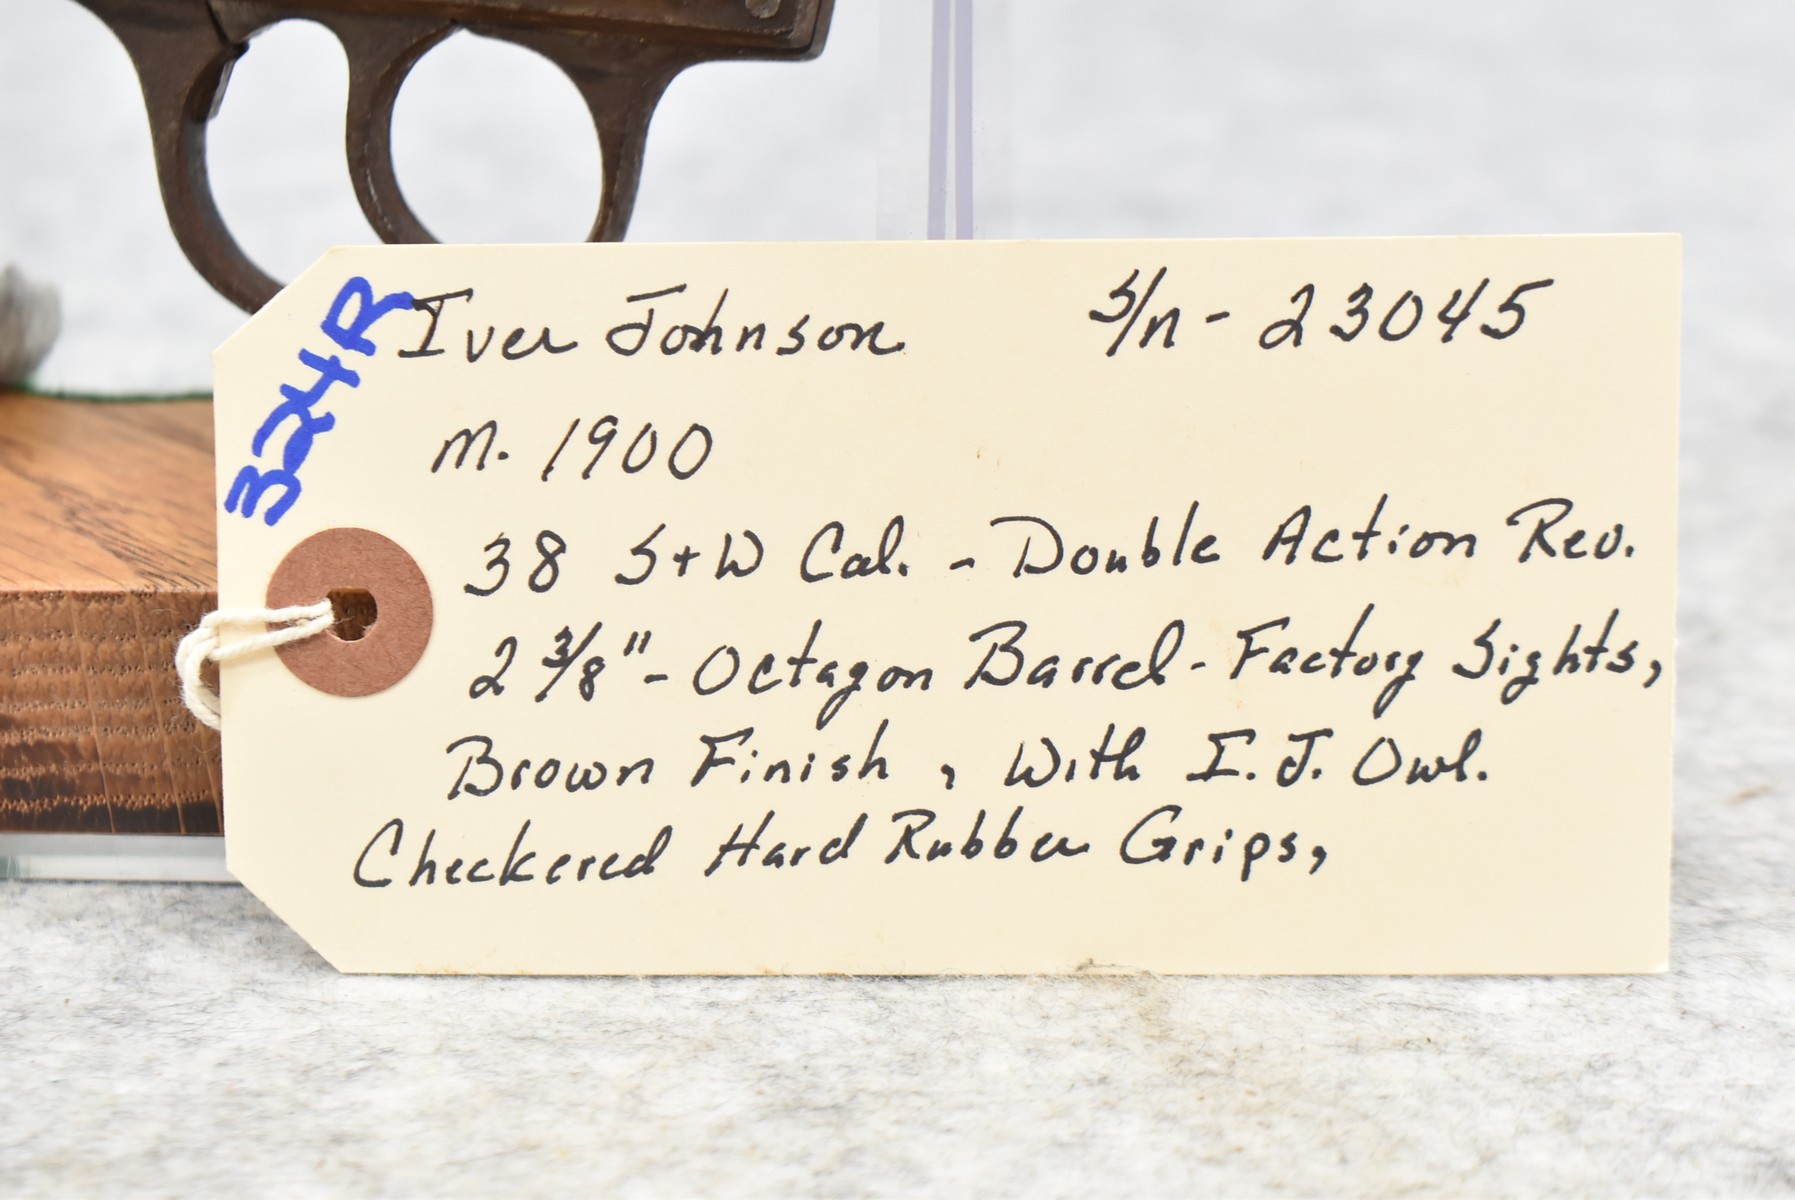 324R
Iver Johnson S/n - 23045
M. 1900
38 S+W Cal. - Double Action Rev.
2 3/8" - Octagon Barrel - Factory Sights,
Brown Finish, With I.J. Owl.
Checkered Hard Rubber Grips,